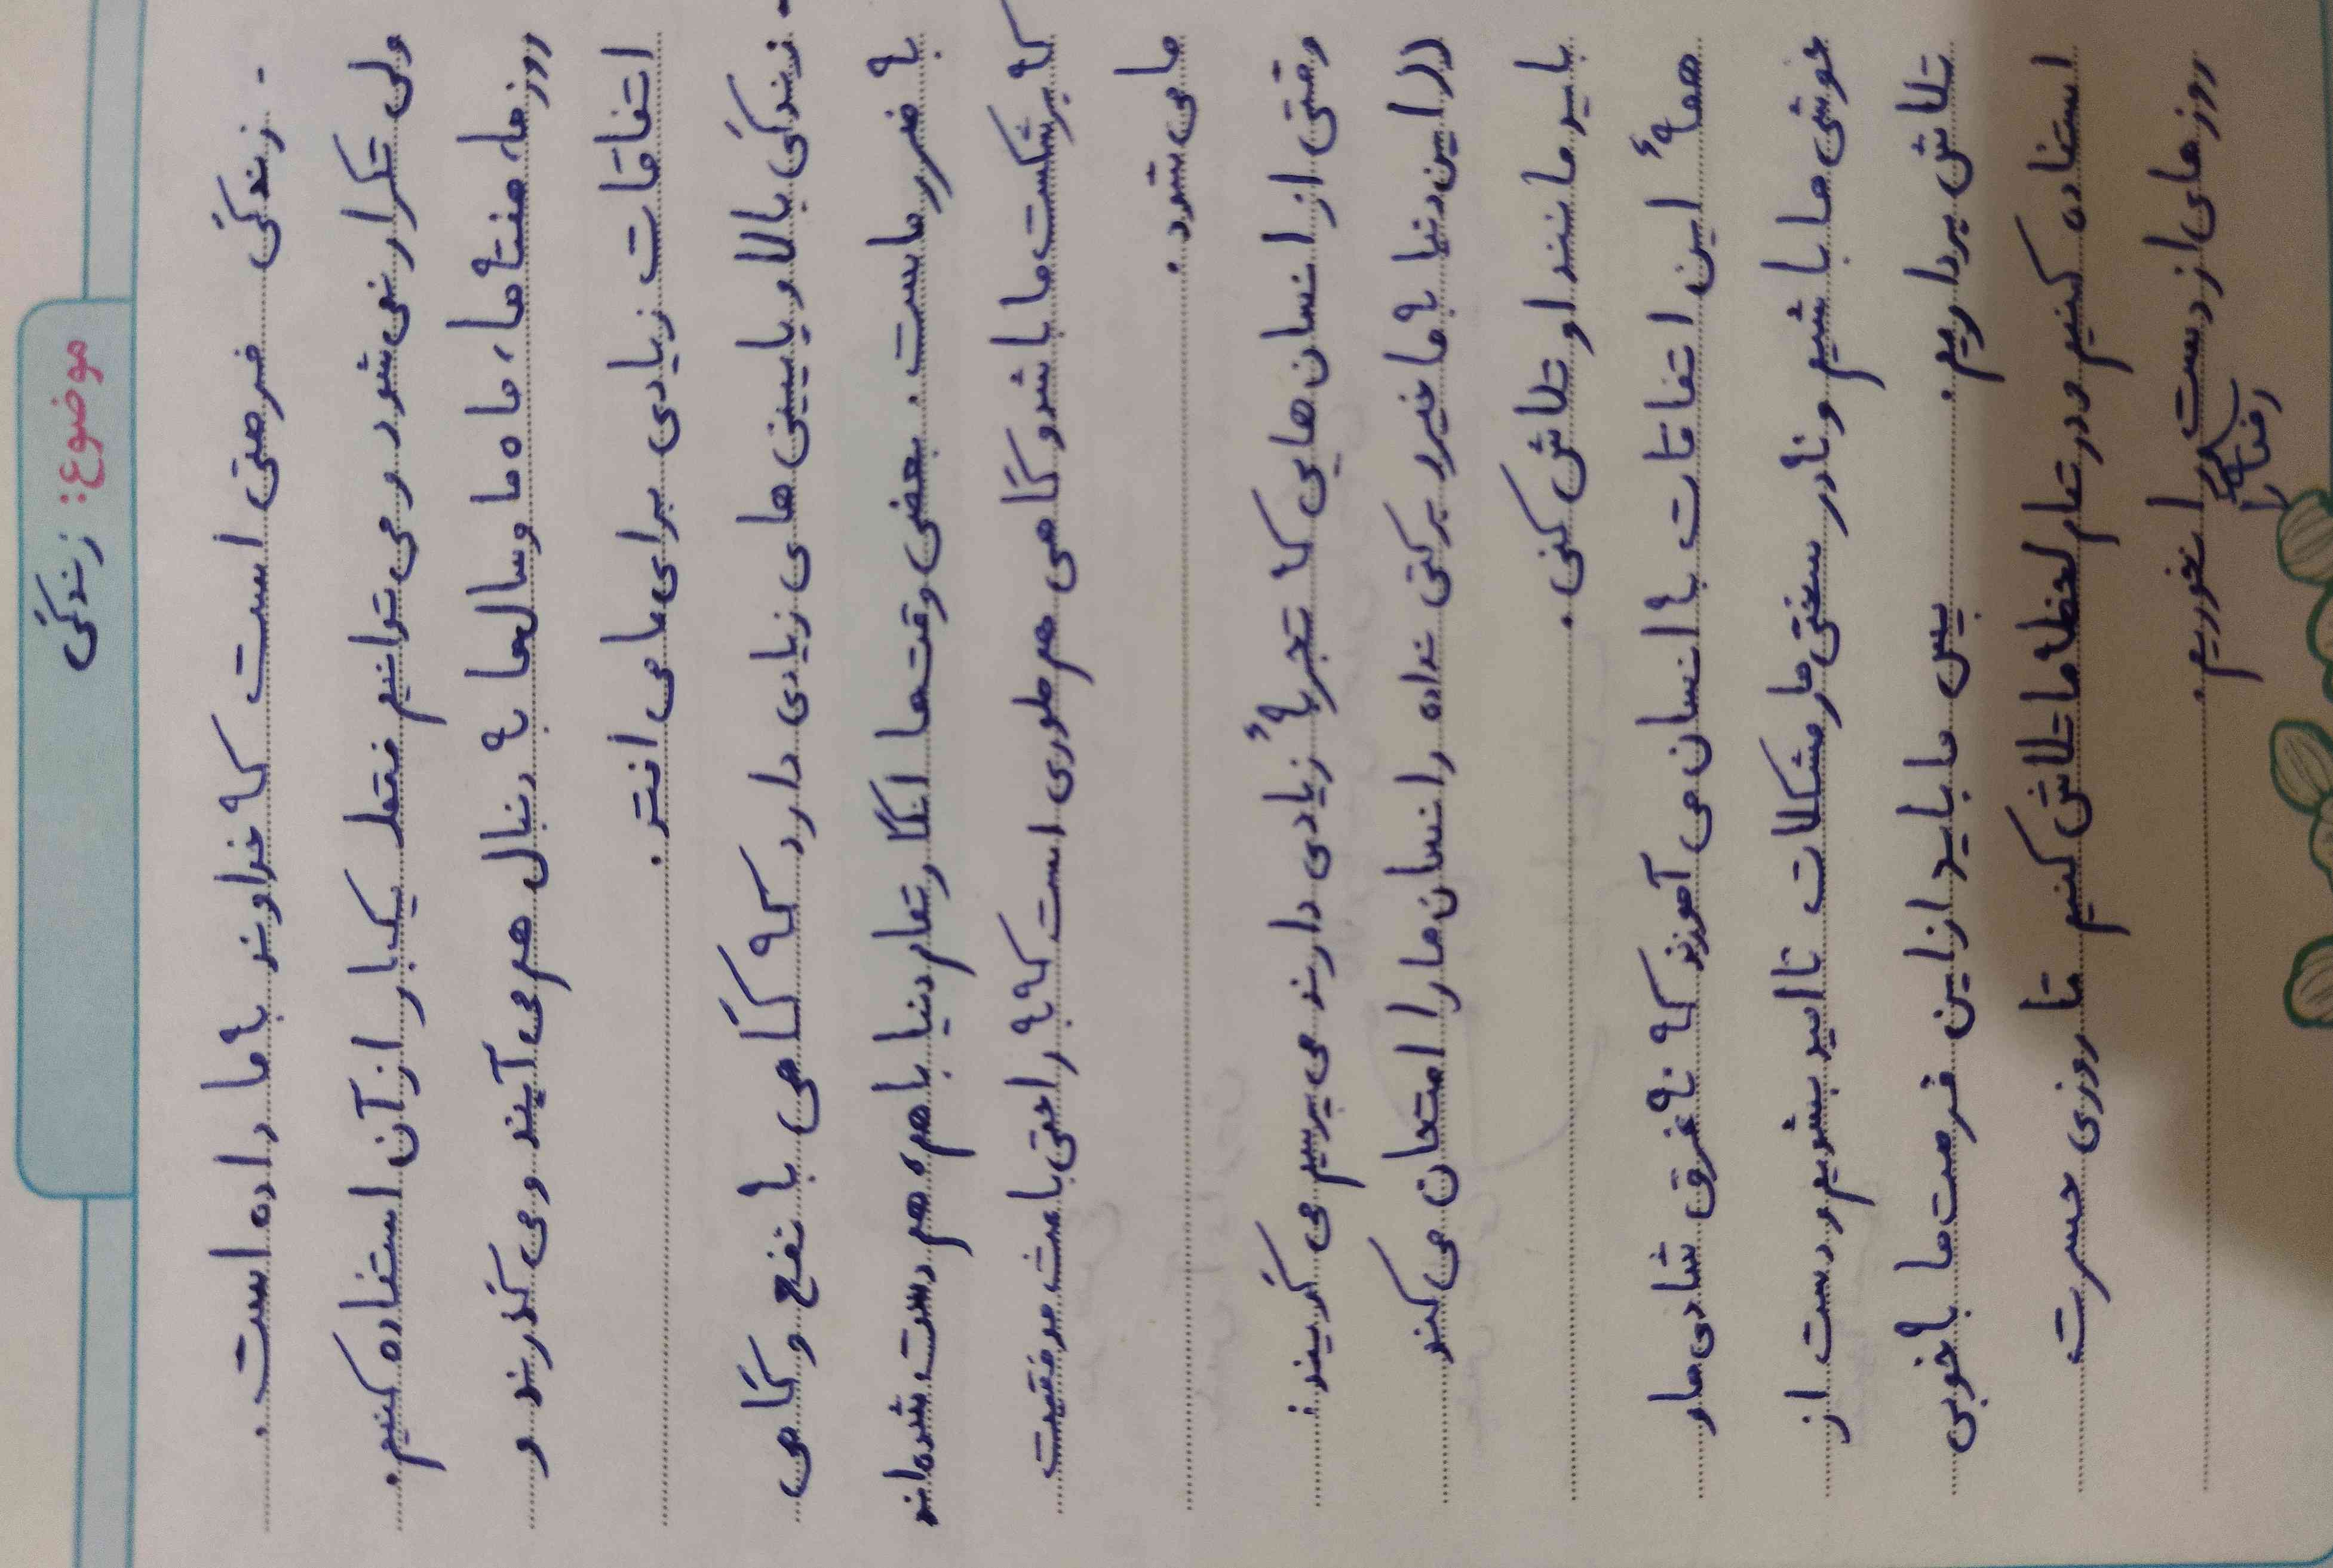 موضوع: زندگی
- زندگی فرصتی است که خداوند به ما داده است.
ولی تکرار نمی شود و می توانیم فقط یکبار از آن استفاده کنیم.
روز ها، هفته ها، ماه ها و سالها به دنبال هم می آیند و می گذرند و
اتفاقات زیادی برای ما می افتد.
زندگی بالا و پایینی های زیادی دارد که گاهی به نفع و گاهی
به ضرر ماست. بعضی وقت ها انگار تمام دنیا با هم، هم دست شده اند
که بر شکست ما باشد و گاهی هم طوری است که به راحتی باعث موفقیت
ما می شود.
وقتی از انسان هایی که تجربهٔ زیادی دارند می پرسیم می گویند:
((این دنیا به ما خیر و برکتی نداده و انسان ها را امتحان می کند
باید مانند او تلاش کنی.
همهٔ این اتفاقات به انسان می آموزند که نه غرق شادی ها و
خوشی ها باشیم و نه در سختی ها و مشکلات ناامید بشویم و دست از
تلاش برداریم. پس ما باید از این فرصت ها به خوبی
استفاده کنیم و در تمام لحظه ها تلاش کنیم تا روزی حسرت
روز های از دست رفته را نخوریم.